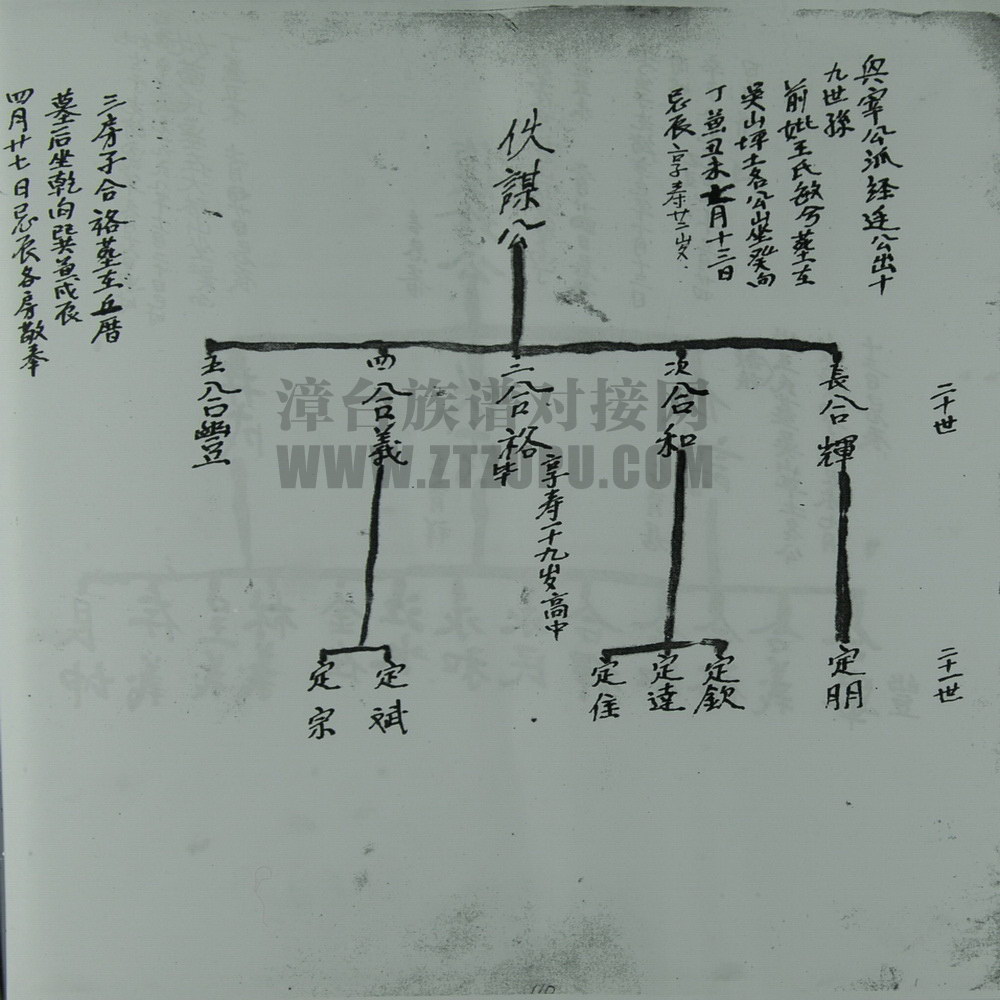 與宰公派经廷公出十
九世孫
前妣王氏敏分墓在
吳山坪土名公山坐癸向
丁兼丑未七月十三日
忌辰享寿廿二岁.
佚謀公
三房子合裕墓在丘厝
墓后坐乾向巽兼戌辰
四月廿七日忌辰各房敬奉
二十世
長合輝
次合和
三合裕
毕
享寿二十九岁高中
四合義
五合豐
二十一世
定明
定欽
定達
定住
定斌
定宗
漳台族谱对接网
WWW.ZTZUPU.COM